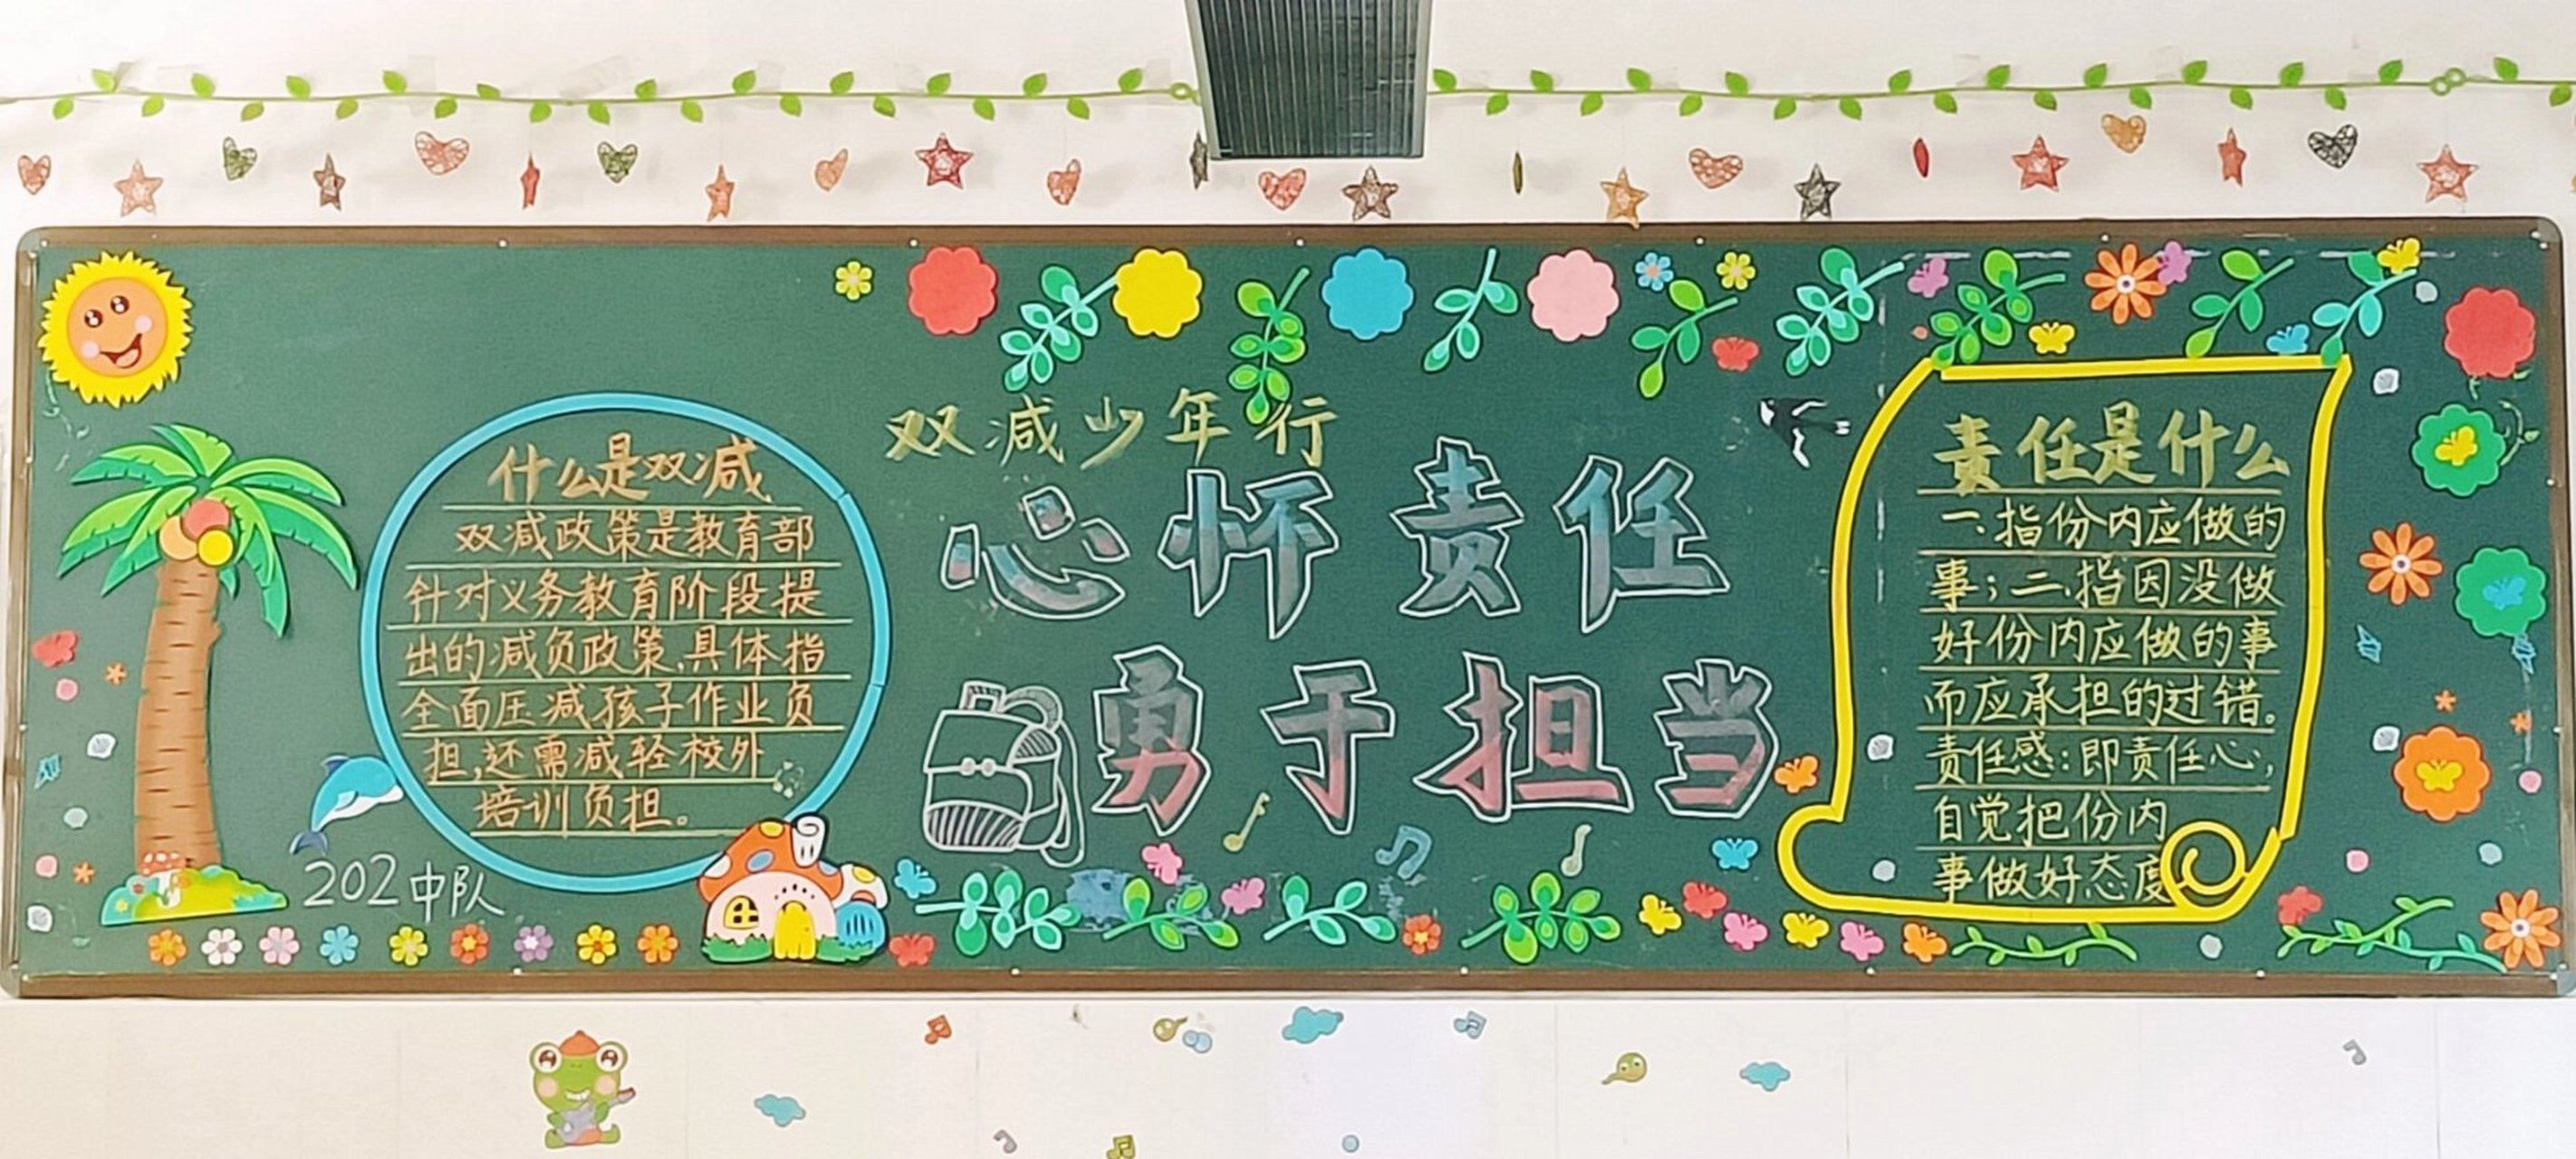 什么是双减
双减政策是教育部
针对义务教育阶段提
出的减负政策,具体指
全面压减孩子作业负
担,还需减轻校外
培训负担。
202中队
双减少年行
心怀责任
勇于担当
责任是什么
一.指份内应做的
事;二.指因没做
好份内应做的事
而应承担的过错。
责任感:即责任心,
自觉把份内
事做好态度